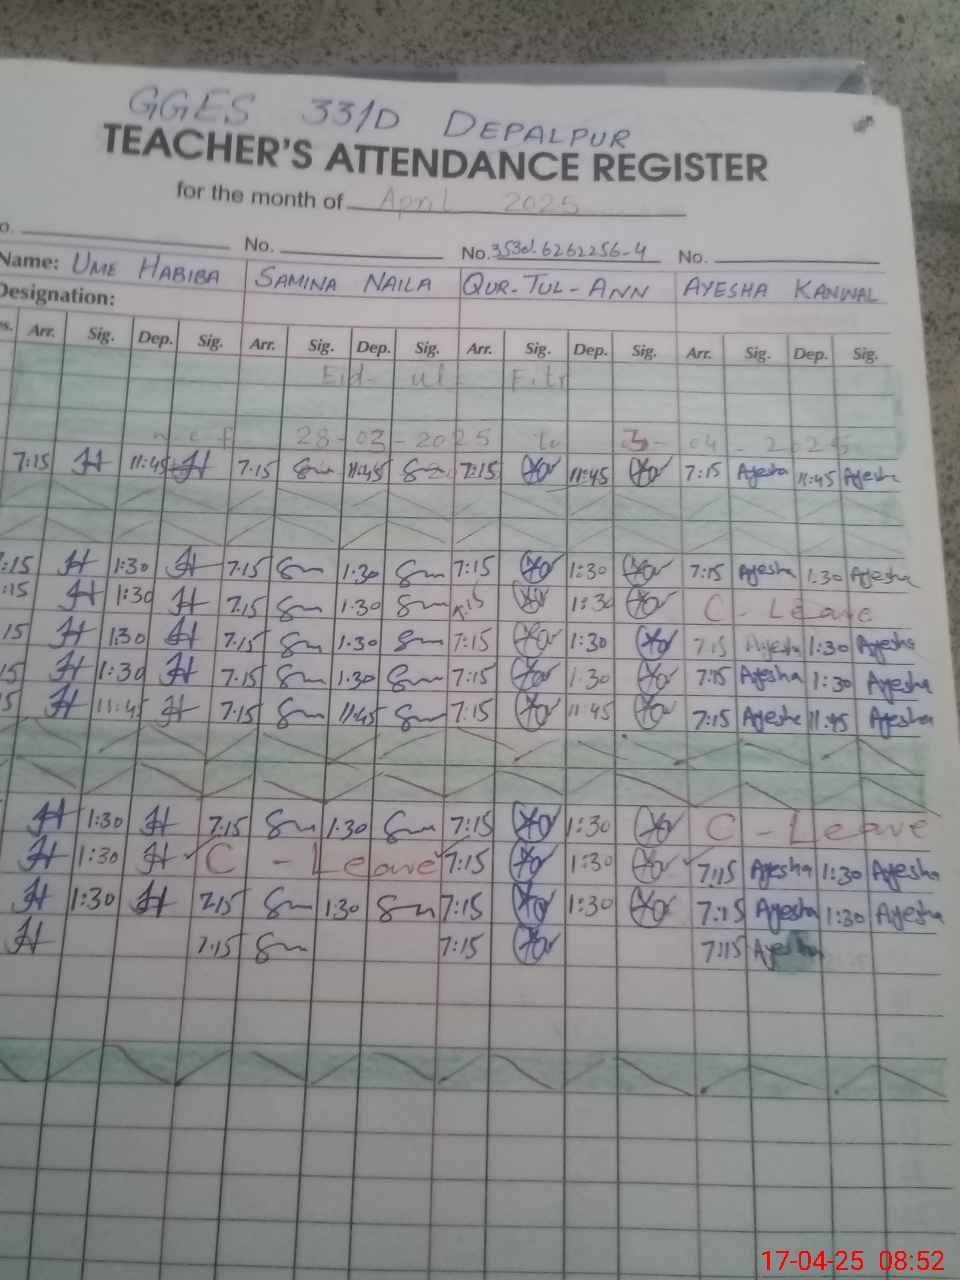 GGES 331/D DEPALPUR
TEACHER'S ATTENDANCE REGISTER
for the month of April 2025
o. No. No. 35301-6262256-4 No.
Name: UME HABIBA SAMINA NAILA QUR-TUL-ANN AYESHA KANWAL
Designation:
s. Arr. Sig. Dep. Sig. Arr. Sig. Dep. Sig. Arr. Sig. Dep. Sig. Arr. Sig. Dep. Sig.
Eid-ul Fitr
w.e.f 28-03-2025 to 3-04-2025
7:15 H 11:45 H 7:15 11:45 7:15 11:45 7:15 Ayesha 11:45 Ayesha
:15 H 1:30 H 7:15 1:30 7:15 1:30 7:15 Ayesha 1:30 Ayesha
:15 H 1:30 H 7:15 1:30 7:15 1:30 C-Leave
15 H 1:30 H 7:15 1:30 7:15 1:30 7:15 Ayesha 1:30 Ayesha
15 H 1:30 H 7:15 1:30 7:15 1:30 7:15 Ayesha 1:30 Ayesha
5 H 11:45 H 7:15 11:45 7:15 11:45 7:15 Ayesha 11:45 Ayesha
H 1:30 H 7:15 1:30 7:15 1:30 C-Leave
H 1:30 H C-Leave 7:15 1:30 7:15 Ayesha 1:30 Ayesha
H 1:30 H 7:15 1:30 7:15 1:30 7:15 Ayesha 1:30 Ayesha
H 7:15 7:15 7:15 Ayesha
17-04-25 08:52